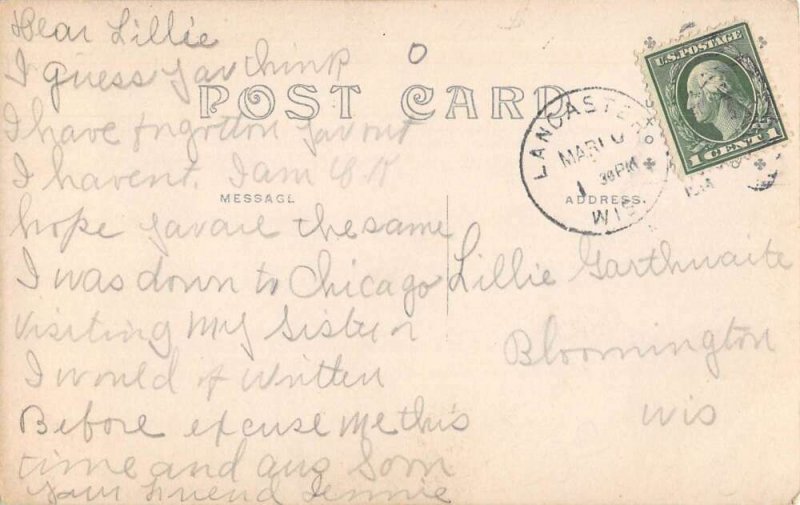 Dear Lillie
I guess yav think
POST CARD
I have forgotton yav out
I havent. I am O K
MESSAGE
hope yav are the same
I was down to Chicago
visiting My Sister
I would of written
Before excuse me this
time and ans Soon
your friend Jennie
U.S. POSTAGE
1 CENT 1
LANCASTER
MAR 10
1 30 PM
1914
WIS.
ADDRESS.
Lillie Garthwaite
Bloomington
Wis